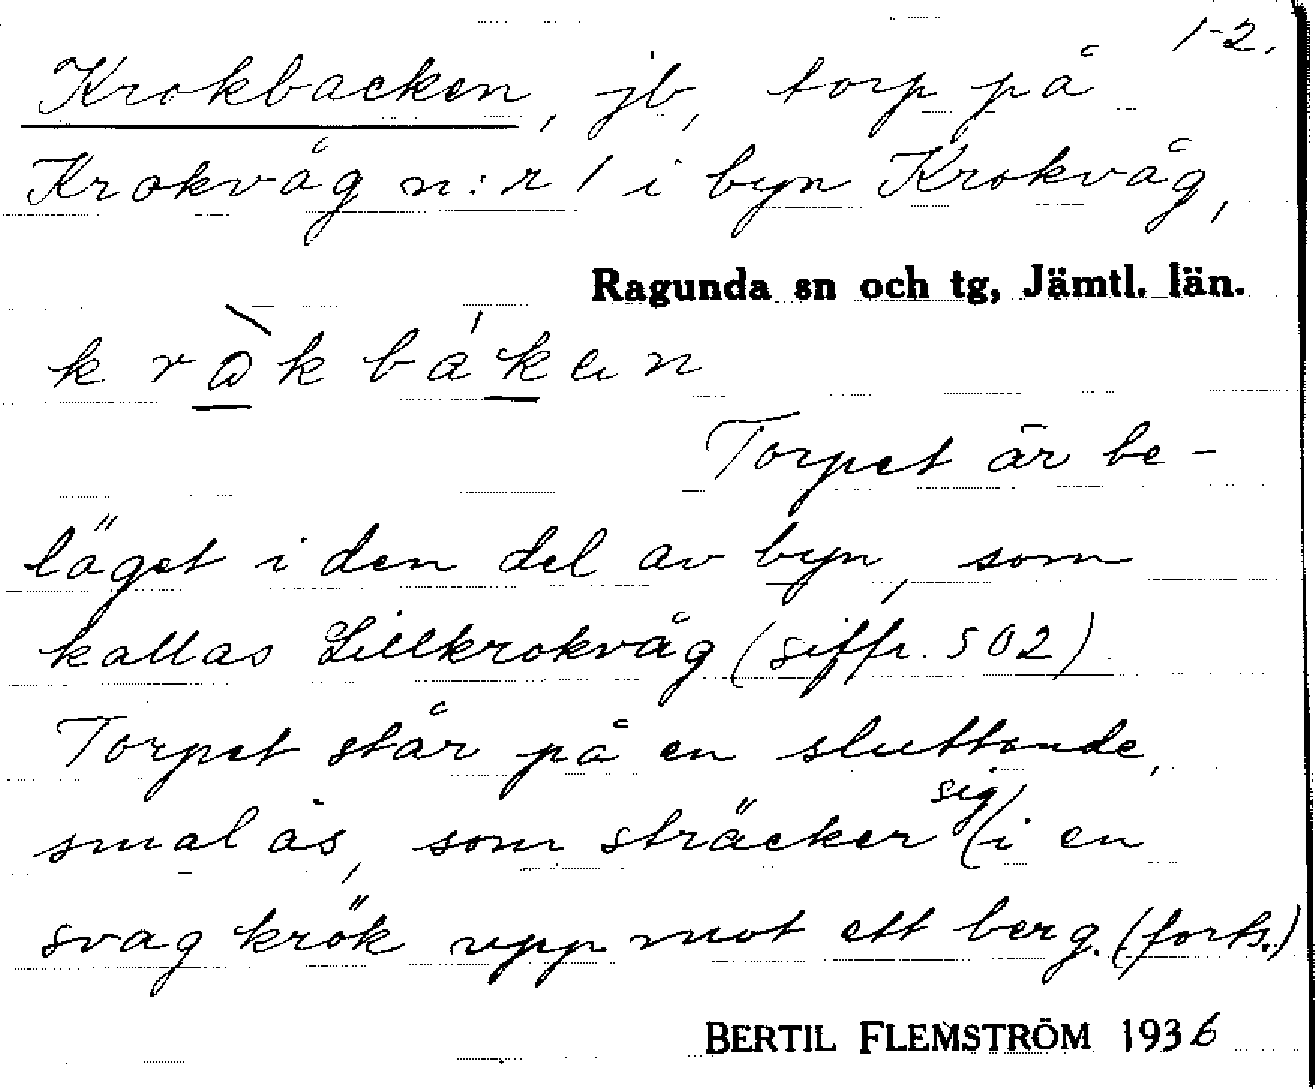 1-2.
Krokbacken, jb, torp på
Krokvåg n:r 1 i byn Krokvåg,
Ragunda sn och tg, Jämtl. län.
Torpet är be-
läget i den del av byn, som
kallas Lillkrokvåg (siffr. 502)
Torpet står på en sluttande,
smal ås, som sträcker sig i en
svag krök upp mot ett berg. (forts.)
BERTIL FLEMSTRÖM 1936